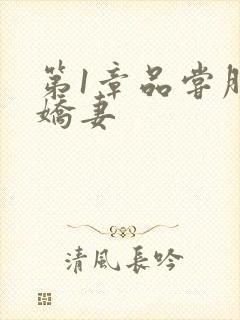 第1章品尝
嬌妻
清風長吟